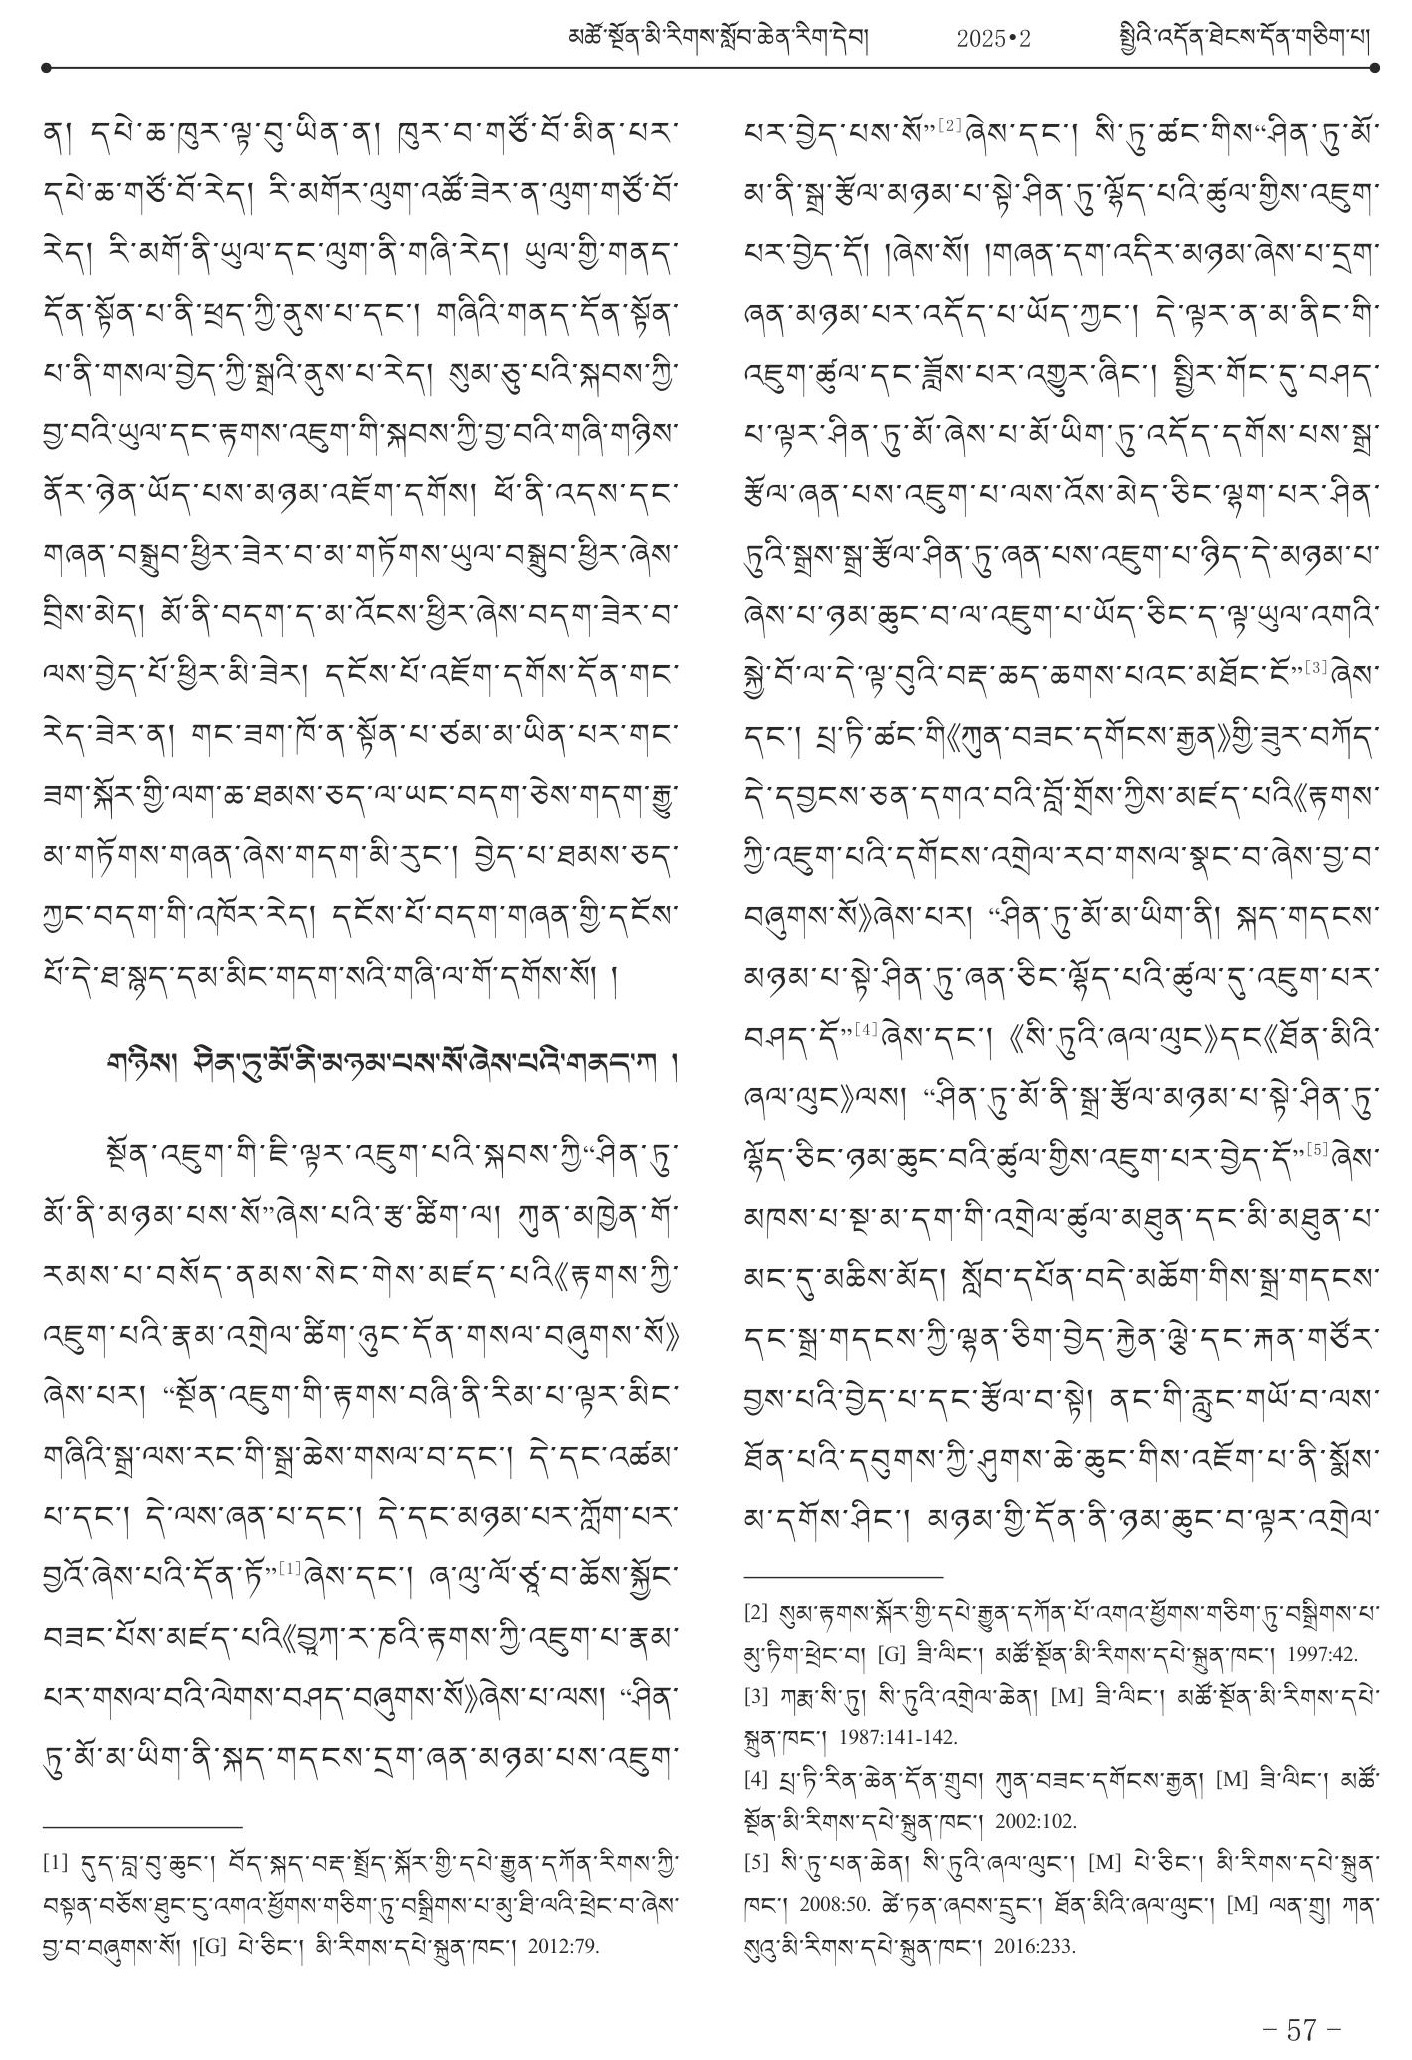 མཚོ་སྔོན་མི་རིགས་སློབ་ཆེན་རིག་དེབ། 2025•2 སྤྱིའི་འདོན་ཐེངས་དོན་གཅིག་པ།
ན། དཔེ་ཆ་ཁུར་ལྟ་བུ་ཡིན་ན། ཁུར་བ་གཙོ་བོ་མིན་པར་
དཔེ་ཆ་གཙོ་བོ་རེད། རི་མགོར་ལུག་འཚོ་ཟེར་ན་ལུག་གཙོ་བོ་
རེད། རི་མགོ་ནི་ཡུལ་དང་ལུག་ནི་གཞི་རེད། ཡུལ་གྱི་གནད་
དོན་སྟོན་པ་ནི་ཕྲད་ཀྱི་ནུས་པ་དང་། གཞིའི་གནད་དོན་སྟོན་
པ་ནི་གསལ་བྱེད་ཀྱི་སྒྲའི་ནུས་པ་རེད། སུམ་ཅུ་པའི་སྐབས་ཀྱི་
བྱ་བའི་ཡུལ་དང་རྟགས་འཇུག་གི་སྐབས་ཀྱི་བྱ་བའི་གཞི་གཉིས་
ནོར་ཉེན་ཡོད་པས་མཉམ་འཇོག་དགོས། ཕོ་ནི་འདས་དང་
གཞན་བསྒྲུབ་ཕྱིར་ཟེར་བ་མ་གཏོགས་ཡུལ་བསྒྲུབ་ཕྱིར་ཞེས་
བྲིས་མེད། མོ་ནི་བདག་ད་མ་འོངས་ཕྱིར་ཞེས་བདག་ཟེར་བ་
ལས་བྱེད་པོ་ཕྱིར་མི་ཟེར། དངོས་པོ་འཇོག་དགོས་དོན་གང་
རེད་ཟེར་ན། གང་ཟག་ཁོ་ན་སྟོན་པ་ཙམ་མ་ཡིན་པར་གང་
ཟག་སྐོར་གྱི་ལག་ཆ་ཐམས་ཅད་ལ་ཡང་བདག་ཅེས་གདག་རྒྱུ་
མ་གཏོགས་གཞན་ཞེས་གདག་མི་རུང་། བྱེད་པ་ཐམས་ཅད་
ཀྱང་བདག་གི་འཁོར་རེད། དངོས་པོ་བདག་གཞན་གྱི་དངོས་
པོ་དེ་ཐ་སྙད་དམ་མིང་གདག་སའི་གཞི་ལ་གོ་དགོས་སོ། །
གཉིས། ཤིན་ཏུ་མོ་ནི་མཉམ་པས་སོ་ཞེས་པའི་གནད་ཀ །
སྔོན་འཇུག་གི་ཇི་ལྟར་འཇུག་པའི་སྐབས་ཀྱི“ཤིན་ཏུ་
མོ་ནི་མཉམ་པས་སོ”ཞེས་པའི་རྩ་ཚིག་ལ། ཀུན་མཁྱེན་གོ་
རམས་པ་བསོད་ནམས་སེང་གེས་མཛད་པའི《རྟགས་ཀྱི་
འཇུག་པའི་རྣམ་འགྲེལ་ཚིག་ཉུང་དོན་གསལ་བཞུགས་སོ》
ཞེས་པར། “སྔོན་འཇུག་གི་རྟགས་བཞི་ནི་རིམ་པ་ལྟར་མིང་
གཞིའི་སྒྲ་ལས་རང་གི་སྒྲ་ཆེས་གསལ་བ་དང་། དེ་དང་འཚམ་
པ་དང་། དེ་ལས་ཞན་པ་དང་། དེ་དང་མཉམ་པར་ཀློག་པར་
བྱའོ་ཞེས་པའི་དོན་ཏོ”[1]ཞེས་དང་། ཞ་ལུ་ལོ་ཙཱ་བ་ཆོས་སྐྱོང་
བཟང་པོས་མཛད་པའི《བྱཱཀ་ར་ཎའི་རྟགས་ཀྱི་འཇུག་པ་རྣམ་
པར་གསལ་བའི་ལེགས་བཤད་བཞུགས་སོ》ཞེས་པ་ལས། “ཤིན་
ཏུ་མོ་མ་ཡིག་ནི་སྐད་གདངས་དྲག་ཞན་མཉམ་པས་འཇུག་
[1] དུད་བླ་བུ་ཆུང་། བོད་སྐད་བརྡ་སྤྲོད་སྐོར་གྱི་དཔེ་རྒྱུན་དཀོན་རིགས་ཀྱི་
བསྟན་བཅོས་ཐུང་ངུ་འགའ་ཕྱོགས་གཅིག་ཏུ་བསྒྲིགས་པ་མུ་ཐི་ལའི་ཕྲེང་བ་ཞེས་
བྱ་བ་བཞུགས་སོ། །[G] པེ་ཅིང་། མི་རིགས་དཔེ་སྐྲུན་ཁང་། 2012:79.
པར་བྱེད་པས་སོ”[2]ཞེས་དང་། སི་ཏུ་ཚང་གིས“ཤིན་ཏུ་མོ་
མ་ནི་སྒྲ་རྩོལ་མཉམ་པ་སྟེ་ཤིན་ཏུ་ལྷོད་པའི་ཚུལ་གྱིས་འཇུག་
པར་བྱེད་དོ། །ཞེས་སོ། །གཞན་དག་འདིར་མཉམ་ཞེས་པ་དྲག་
ཞན་མཉམ་པར་འདོད་པ་ཡོད་ཀྱང་། དེ་ལྟར་ན་མ་ནིང་གི་
འཇུག་ཚུལ་དང་ཟློས་པར་འགྱུར་ཞིང་། སྤྱིར་གོང་དུ་བཤད་
པ་ལྟར་ཤིན་ཏུ་མོ་ཞེས་པ་མོ་ཡིག་ཏུ་འདོད་དགོས་པས་སྒྲ་
རྩོལ་ཞན་པས་འཇུག་པ་ལས་འོས་མེད་ཅིང་ལྷག་པར་ཤིན་
ཏུའི་སྒྲས་སྒྲ་རྩོལ་ཤིན་ཏུ་ཞན་པས་འཇུག་པ་ཉིད་དེ་མཉམ་པ་
ཞེས་པ་ཉམ་ཆུང་བ་ལ་འཇུག་པ་ཡོད་ཅིང་ད་ལྟ་ཡུལ་འགའི་
སྐྱེ་བོ་ལ་དེ་ལྟ་བུའི་བརྡ་ཆད་ཆགས་པའང་མཐོང་ངོ”[3]ཞེས་
དང་། པྲ་ཏི་ཚང་གི《ཀུན་བཟང་དགོངས་རྒྱན》གྱི་ཟུར་བཀོད་
དེ་དབྱངས་ཅན་དགའ་བའི་བློ་གྲོས་ཀྱིས་མཛད་པའི《རྟགས་
ཀྱི་འཇུག་པའི་དགོངས་འགྲེལ་རབ་གསལ་སྣང་བ་ཞེས་བྱ་བ་
བཞུགས་སོ》ཞེས་པར། “ཤིན་ཏུ་མོ་མ་ཡིག་ནི། སྐད་གདངས་
མཉམ་པ་སྟེ་ཤིན་ཏུ་ཞན་ཅིང་ལྷོད་པའི་ཚུལ་དུ་འཇུག་པར་
བཤད་དོ”[4]ཞེས་དང་། 《སི་ཏུའི་ཞལ་ལུང》དང《ཐོན་མིའི་
ཞལ་ལུང》ལས། “ཤིན་ཏུ་མོ་ནི་སྒྲ་རྩོལ་མཉམ་པ་སྟེ་ཤིན་ཏུ་
ལྷོད་ཅིང་ཉམ་ཆུང་བའི་ཚུལ་གྱིས་འཇུག་པར་བྱེད་དོ”[5]ཞེས་
མཁས་པ་སྔ་མ་དག་གི་འགྲེལ་ཚུལ་མཐུན་དང་མི་མཐུན་པ་
མང་དུ་མཆིས་མོད། སློབ་དཔོན་བདེ་མཆོག་གིས་སྒྲ་གདངས་
དང་སྒྲ་གདངས་ཀྱི་ལྷན་ཅིག་བྱེད་རྐྱེན་ལྕེ་དང་རྐན་གཙོར་
བྱས་པའི་བྱེད་པ་དང་རྩོལ་བ་སྟེ། ནང་གི་རླུང་གཡོ་བ་ལས་
ཐོན་པའི་དབུགས་ཀྱི་ཤུགས་ཆེ་ཆུང་གིས་འཇོག་པ་ནི་སྨོས་
མ་དགོས་ཤིང་། མཉམ་གྱི་དོན་ནི་ཉམ་ཆུང་བ་ལྟར་འགྲེལ་
[2] སུམ་རྟགས་སྐོར་གྱི་དཔེ་རྒྱུན་དཀོན་པོ་འགའ་ཕྱོགས་གཅིག་ཏུ་བསྒྲིགས་པ་
མུ་ཏིག་ཕྲེང་བ། [G] ཟི་ལིང་། མཚོ་སྔོན་མི་རིགས་དཔེ་སྐྲུན་ཁང་། 1997:42.
[3] ཀརྨ་སི་ཏུ། སི་ཏུའི་འགྲེལ་ཆེན། [M] ཟི་ལིང་། མཚོ་སྔོན་མི་རིགས་དཔེ་
སྐྲུན་ཁང་། 1987:141-142.
[4] པྲ་ཏི་རིན་ཆེན་དོན་གྲུབ། ཀུན་བཟང་དགོངས་རྒྱན། [M] ཟི་ལིང་། མཚོ་
སྔོན་མི་རིགས་དཔེ་སྐྲུན་ཁང་། 2002:102.
[5] སི་ཏུ་པན་ཆེན། སི་ཏུའི་ཞལ་ལུང་། [M] པེ་ཅིང་། མི་རིགས་དཔེ་སྐྲུན་
ཁང་། 2008:50. ཚེ་ཏན་ཞབས་དྲུང་། ཐོན་མིའི་ཞལ་ལུང་། [M] ལན་གྲུ། ཀན་
སུའུ་མི་རིགས་དཔེ་སྐྲུན་ཁང་། 2016:233.
– 57 –